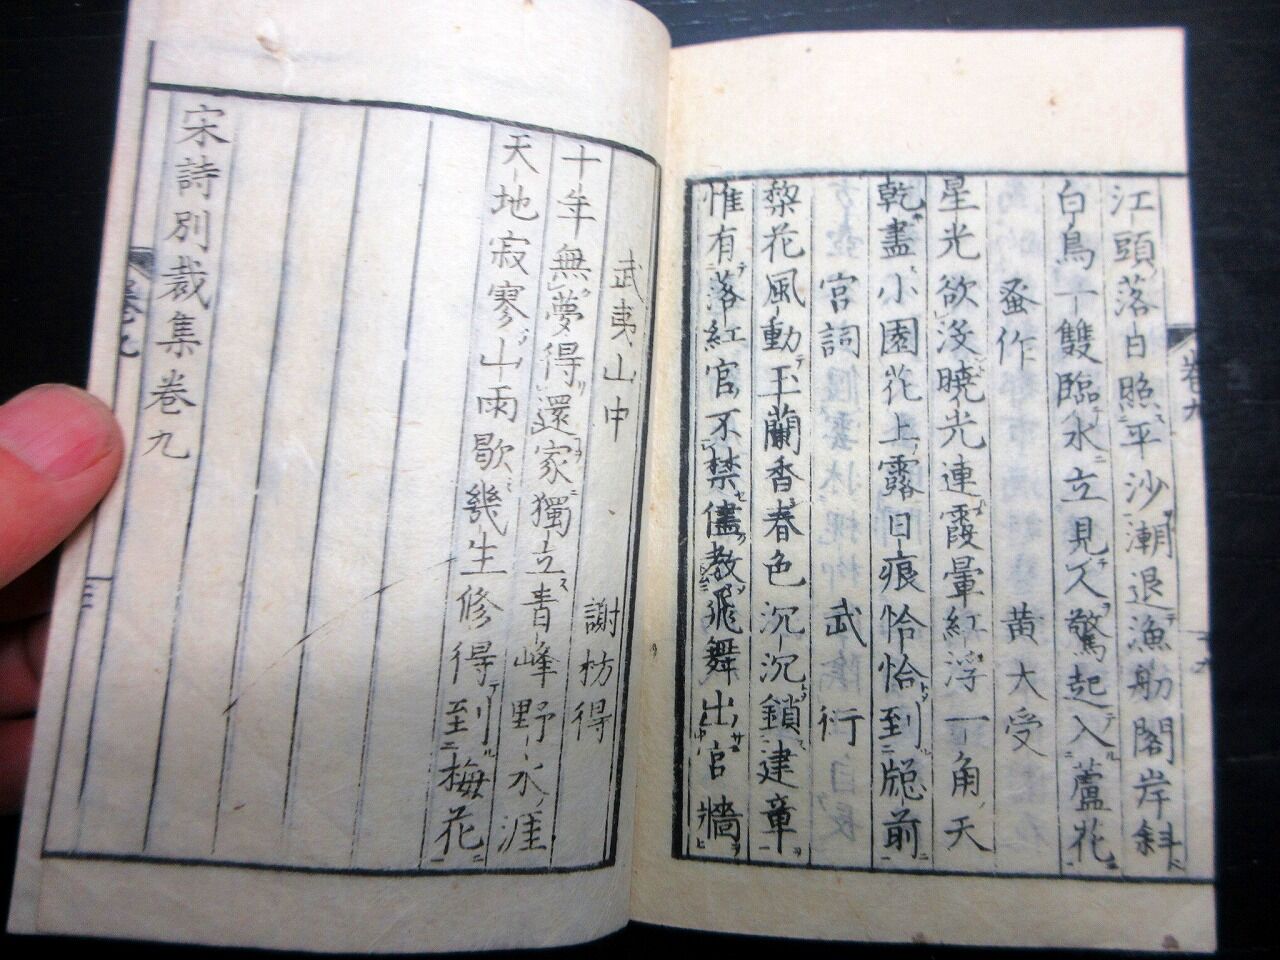 江頭落日照平沙潮退漁舠閣岸斜
白鳥一雙臨水立見人驚起入蘆花
蚤作 黃大受
星光欲沒曉光連霞暈紅浮一角天
乾盡小園花上露日痕恰恰到牕前
宮詞 武衍
棃花風動玉蘭香春色沉沉鎖建章
惟有落紅官不禁儘教飛舞出宮牆
卷九
武夷山中 謝枋得
十年無夢得還家獨立青峰野水涯
天地寂寥山雨歇幾生修得到梅花
宋詩別裁集卷九
卷九